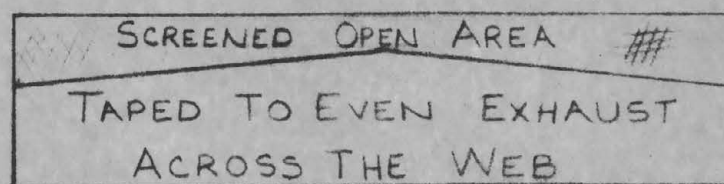 SCREENED OPEN AREA
TAPED TO EVEN EXHAUST
ACROSS THE WEB